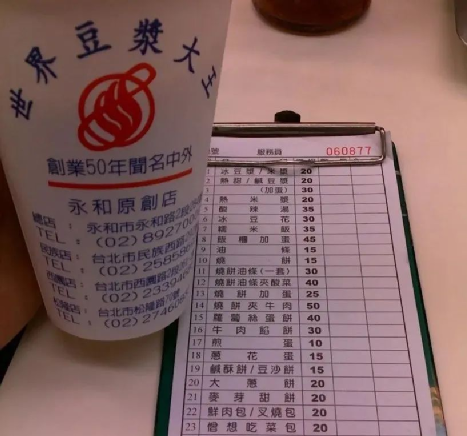 世界豆漿大王
創業50年聞名中外
永和原創店
總店：永和市永和路2段
TEL：(02)892700
民族店：台北市民族西路
TEL：(02)25858
台北市西園路2段
TEL：(02)2339
台北市松隆路
TEL：(02)27460
號 服務員 060877
1 冰豆漿/米漿 20
2 熱甜/鹹豆漿 20
3 (加蛋) 30
4 熱米漿 20
5 酸辣湯 35
6 冰豆花 30
7 糯米飯 35
8 飯糰加蛋 45
9 油條 15
10 燒餅 15
11 燒餅油條(一套) 30
12 燒餅油條夾酸菜 40
13 燒餅加蛋 25
14 燒餅夾牛肉 50
15 蘿蔔絲蛋餅 40
16 牛肉餡餅 30
17 煎蛋 10
18 蔥花蛋 15
19 鹹酥餅/豆沙餅 15
20 大蔥餅 20
21 麥芽甜餅 20
22 鮮肉包/叉燒包 20
23 僧想吃菜包 20